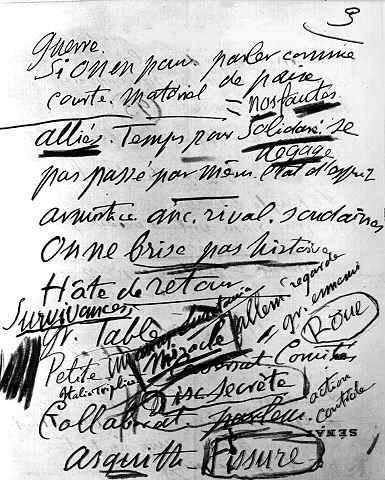 3
guerre.
Si on en parler comme
courte. matériel de paix
= nos fautes
alliés. Temps pour Solidaré. se
dégage
pas passé par même état d'esprit
armistice anc. rival. soudaines
On ne brise pas histoire
Hâte de retour
Survivances
gr. Table allem regarde
Petite Miracle gr. ennemi
Roue
Italie Triplice Comités
Disc. secrète action
Collaborat. parlem. contrôle
SÉNA
Asquith Fissure